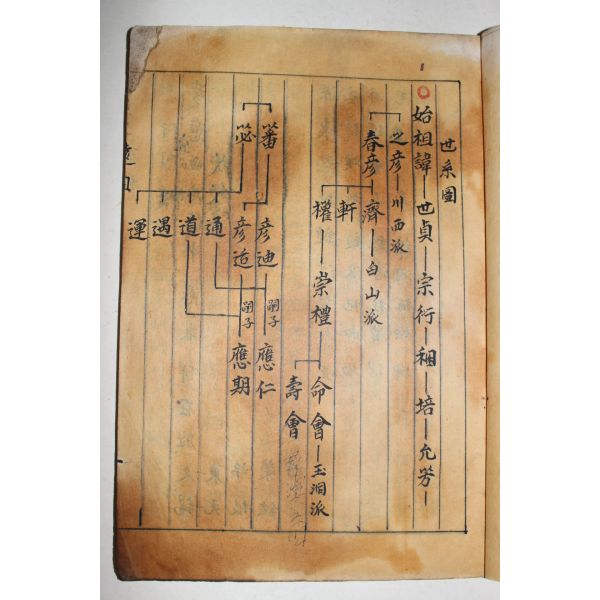 世系圖
始祖諱 世貞 宗衍 稛 培 允芳
之彦 川西派
春彦 濟 白山派
軒
權 崇禮 命會 玉洞派
壽會
蕃 彦迪 嗣子 應仁
苾 彦适 嗣子 應期
通
道
遇
運